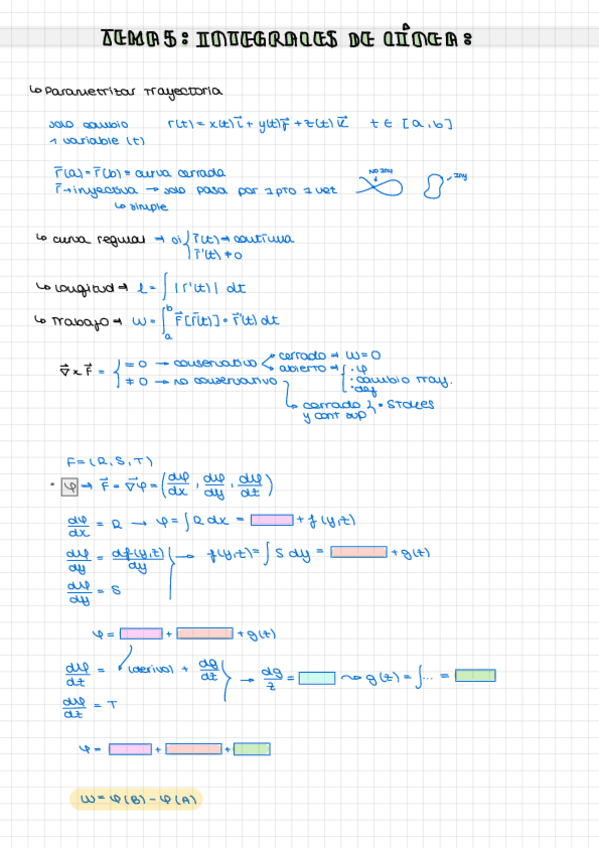 TEMA 5: INTEGRALES DE LÍNEA:
↳ Parametrizar trayectoria
solo cambio r(t) = x(t)i⃗ + y(t)j⃗ + z(t)k⃗ t ∈ [a,b]
1 variable (t)
r⃗(a) = r⃗(b) = curva cerrada
r⃗ → inyectiva → solo pasa por 1 pto 1 vez
NO INY
INY
↳ simple
↳ curva regular → si { r⃗(t) → continua
r⃗'(t) ≠ 0
↳ Longitud → L = ∫ |r'(t)| dt
↳ Trabajo → W = ∫ₐᵇ F⃗[r⃗(t)] · r⃗'(t) dt
∇⃗ × F⃗ = { = 0 → conservativo < cerrado → W = 0
abierto → { · φ
· cambio tray.
· def
≠ 0 → no conservativo
↳ cerrado } · Stokes
y cont sup
F = (R, S, T)
· φ → F⃗ = ∇⃗φ = (dφ/dx, dφ/dy, dφ/dz)
dφ/dx = R → φ = ∫ R dx = + f(y,z)
dφ/dy = df(y,z)/dy → f(y,z) = ∫ S dy = + g(z)
dφ/dy = S
φ = + + g(z)
dφ/dz = (derivo) + dg/dz → dg/z = ⤳ g(z) = ∫... =
dφ/dz = T
φ = + +
W = φ(B) - φ(A)